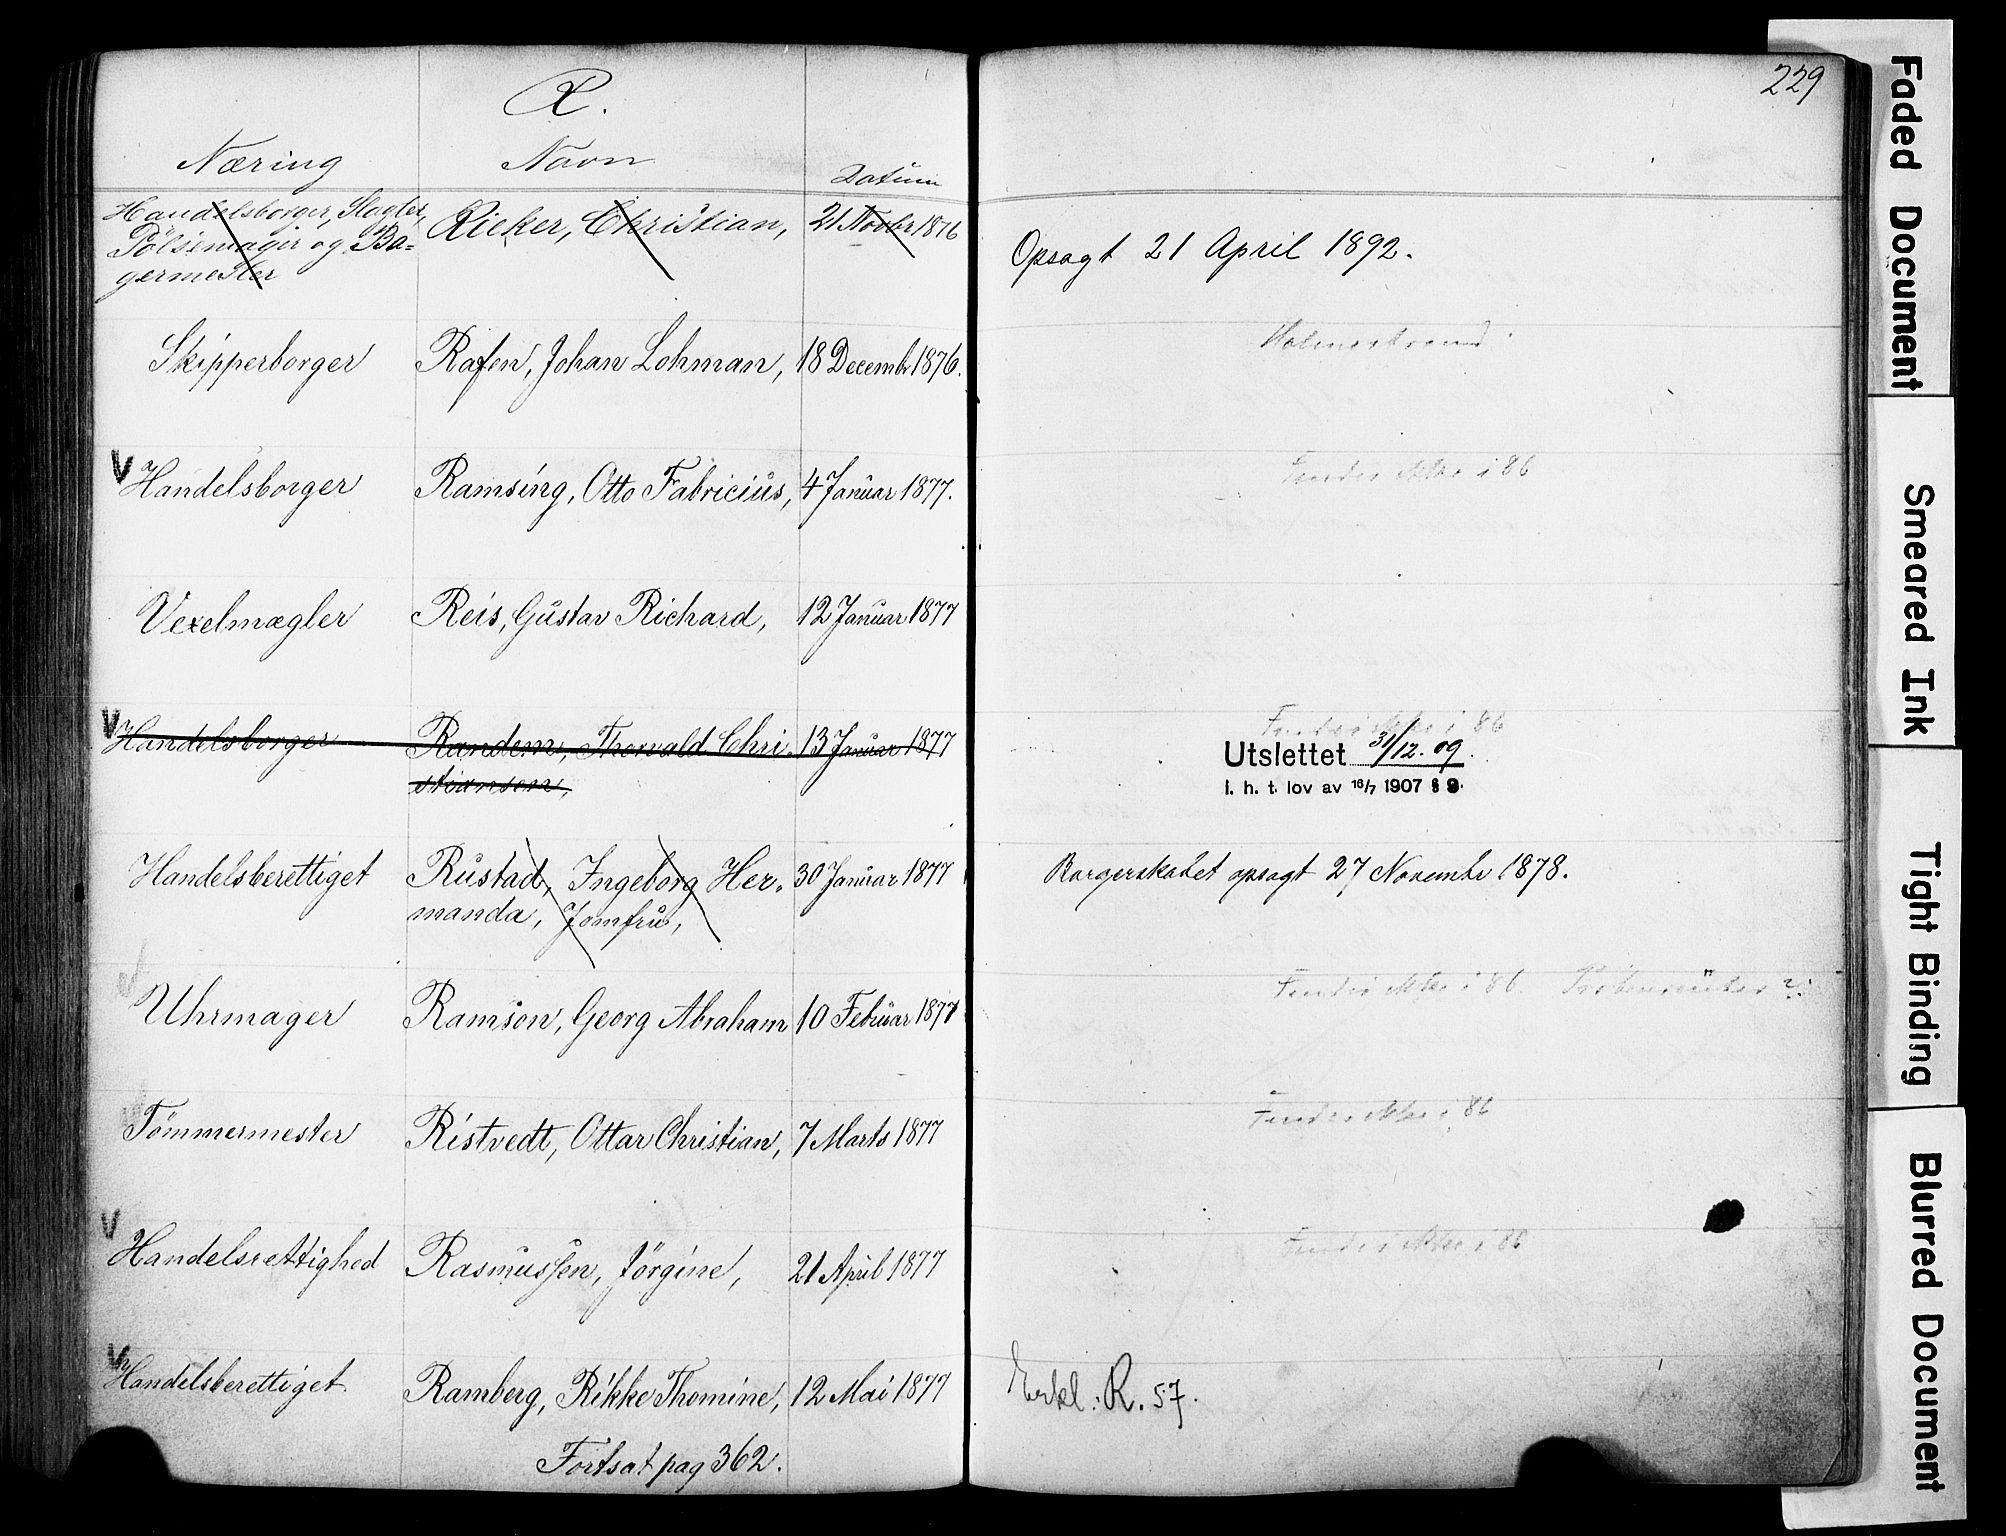 R.
229
Næring Navn Datum
Handelsborger, Slagter, Rieker, Christian, 21 Novbr 1876
Pölsemager og Ba-
germester
Opsagt 21 April 1892.
Skipperborger Rafen, Johan Lohman, 18 Decembr 1876.
Holmestrand
V Handelsborger Ramsing, Otto Fabricius, 4 Januar 1877.
Findes ikke i 86
Vexelmægler Reis, Gustav Richard, 12 Januar 1877
V Handelsborger Randem, Thorvald Chri- 13 Januar 1877
stiansen,
Findes ikke i 86
Utslettet 31/12.09.
i. h. t. lov av 16/7 1907 § 9.
Handelsberettiget Rustad, Ingeborg Her- 30 Januar 1877
manda, Jomfru,
Borgerskabet opsagt 27 Novembr 1878.
Uhrmager Ramson, Georg Abraham 10 Februar 1877
Findes ikke i 86
Tömmermester Ristvedt, Ottar Christian, 7 Marts 1877
Findes ikke i 86
V Handelsrettighed Rasmussen, Jörgine, 21 April 1877
Findes ikke i 86
V Handelsberettiget Ramberg, Rikke Thomine, 12 Mai 1877
Erkl: R. 57.
Fortsat pag 362.
Faded Document
Smeared Ink
Tight Binding
Blurred Document